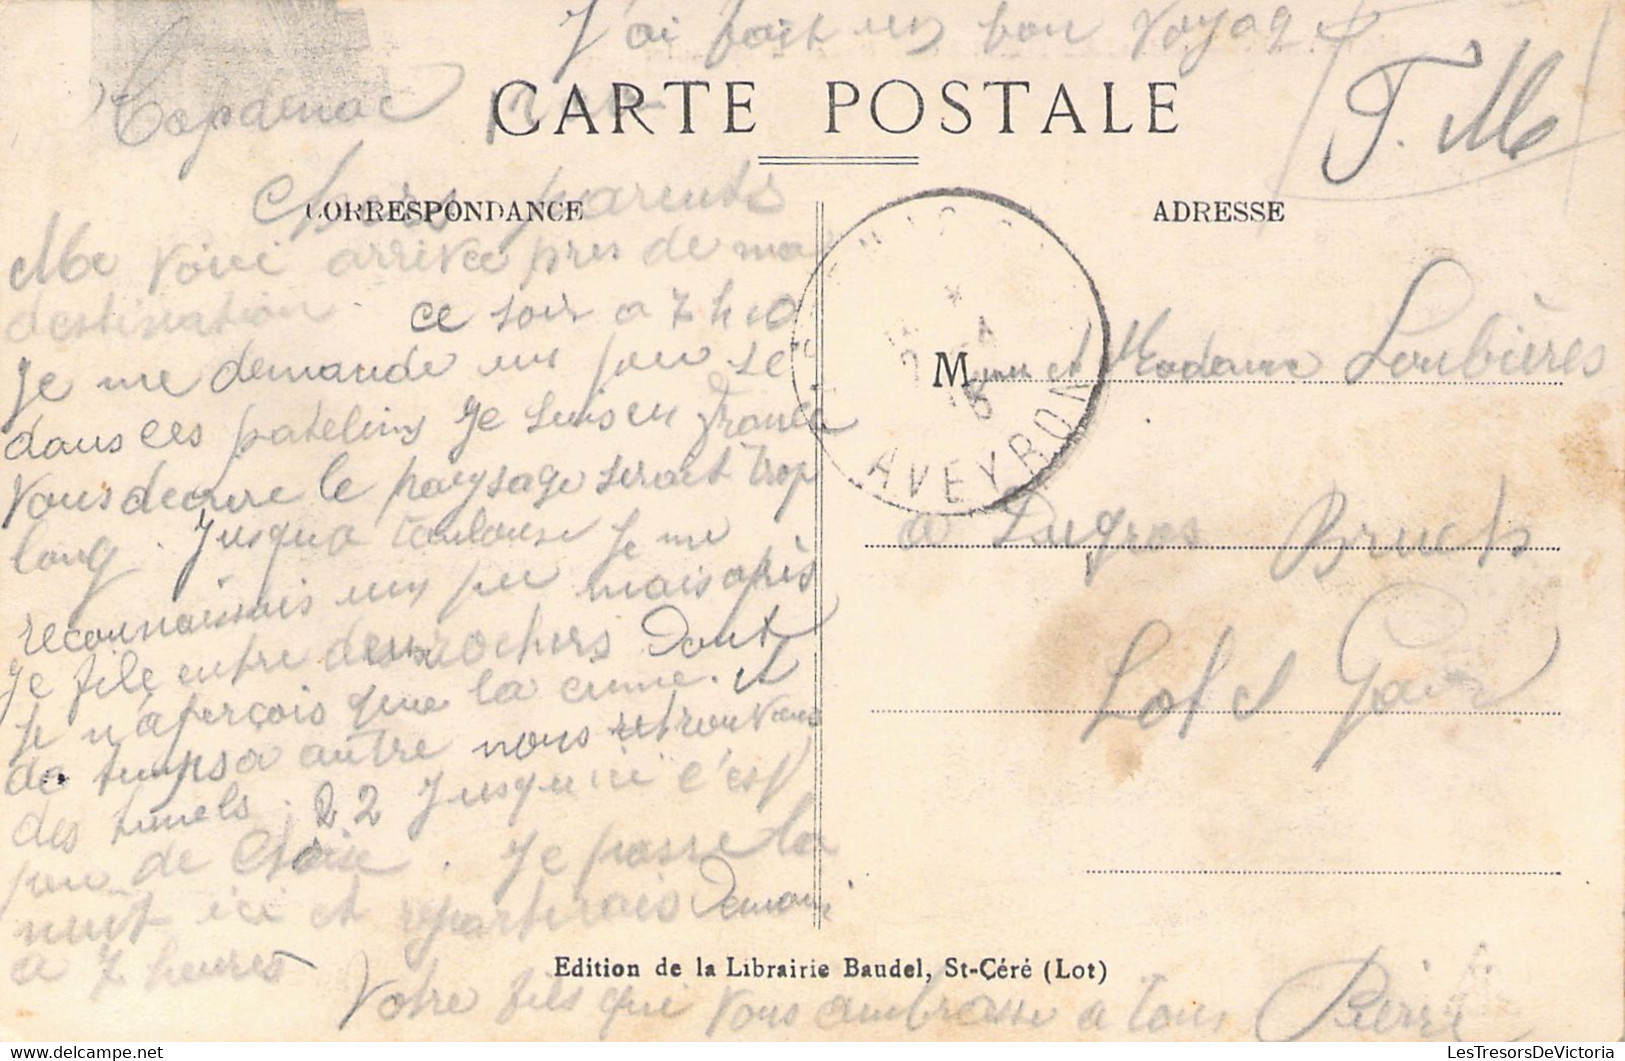 J'ai fait un bon voyage
F. M
Capdenac
CARTE POSTALE
CORRESPONDANCE
ADRESSE
Chers parents
Me voici arrivée pres de ma
destination. ce soir a 7 h 10
Je me demande un peu se
dans ces patelins Je suis en France
Vous decrire le paysage serait trop
long. Jusqu'a toulouse Je me
reconnaissais un peu mais après
Je file entre des rochers Dont
Je n'aperçois que la cime. et
de temps a autre nous retrouvons
des tunels. 22 Jusqu'ici c'est
de Je passe la
nuit ici et repartirais Demain
a 7 heures
Votre fils qui vous ambrasse a tous Pierre
AVEYRON
M et Madame Loubières
a Lugros Bruch
Lot et Gar
Edition de la Librairie Baudel, St-Céré (Lot)
LesTresorsDeVictoria.com